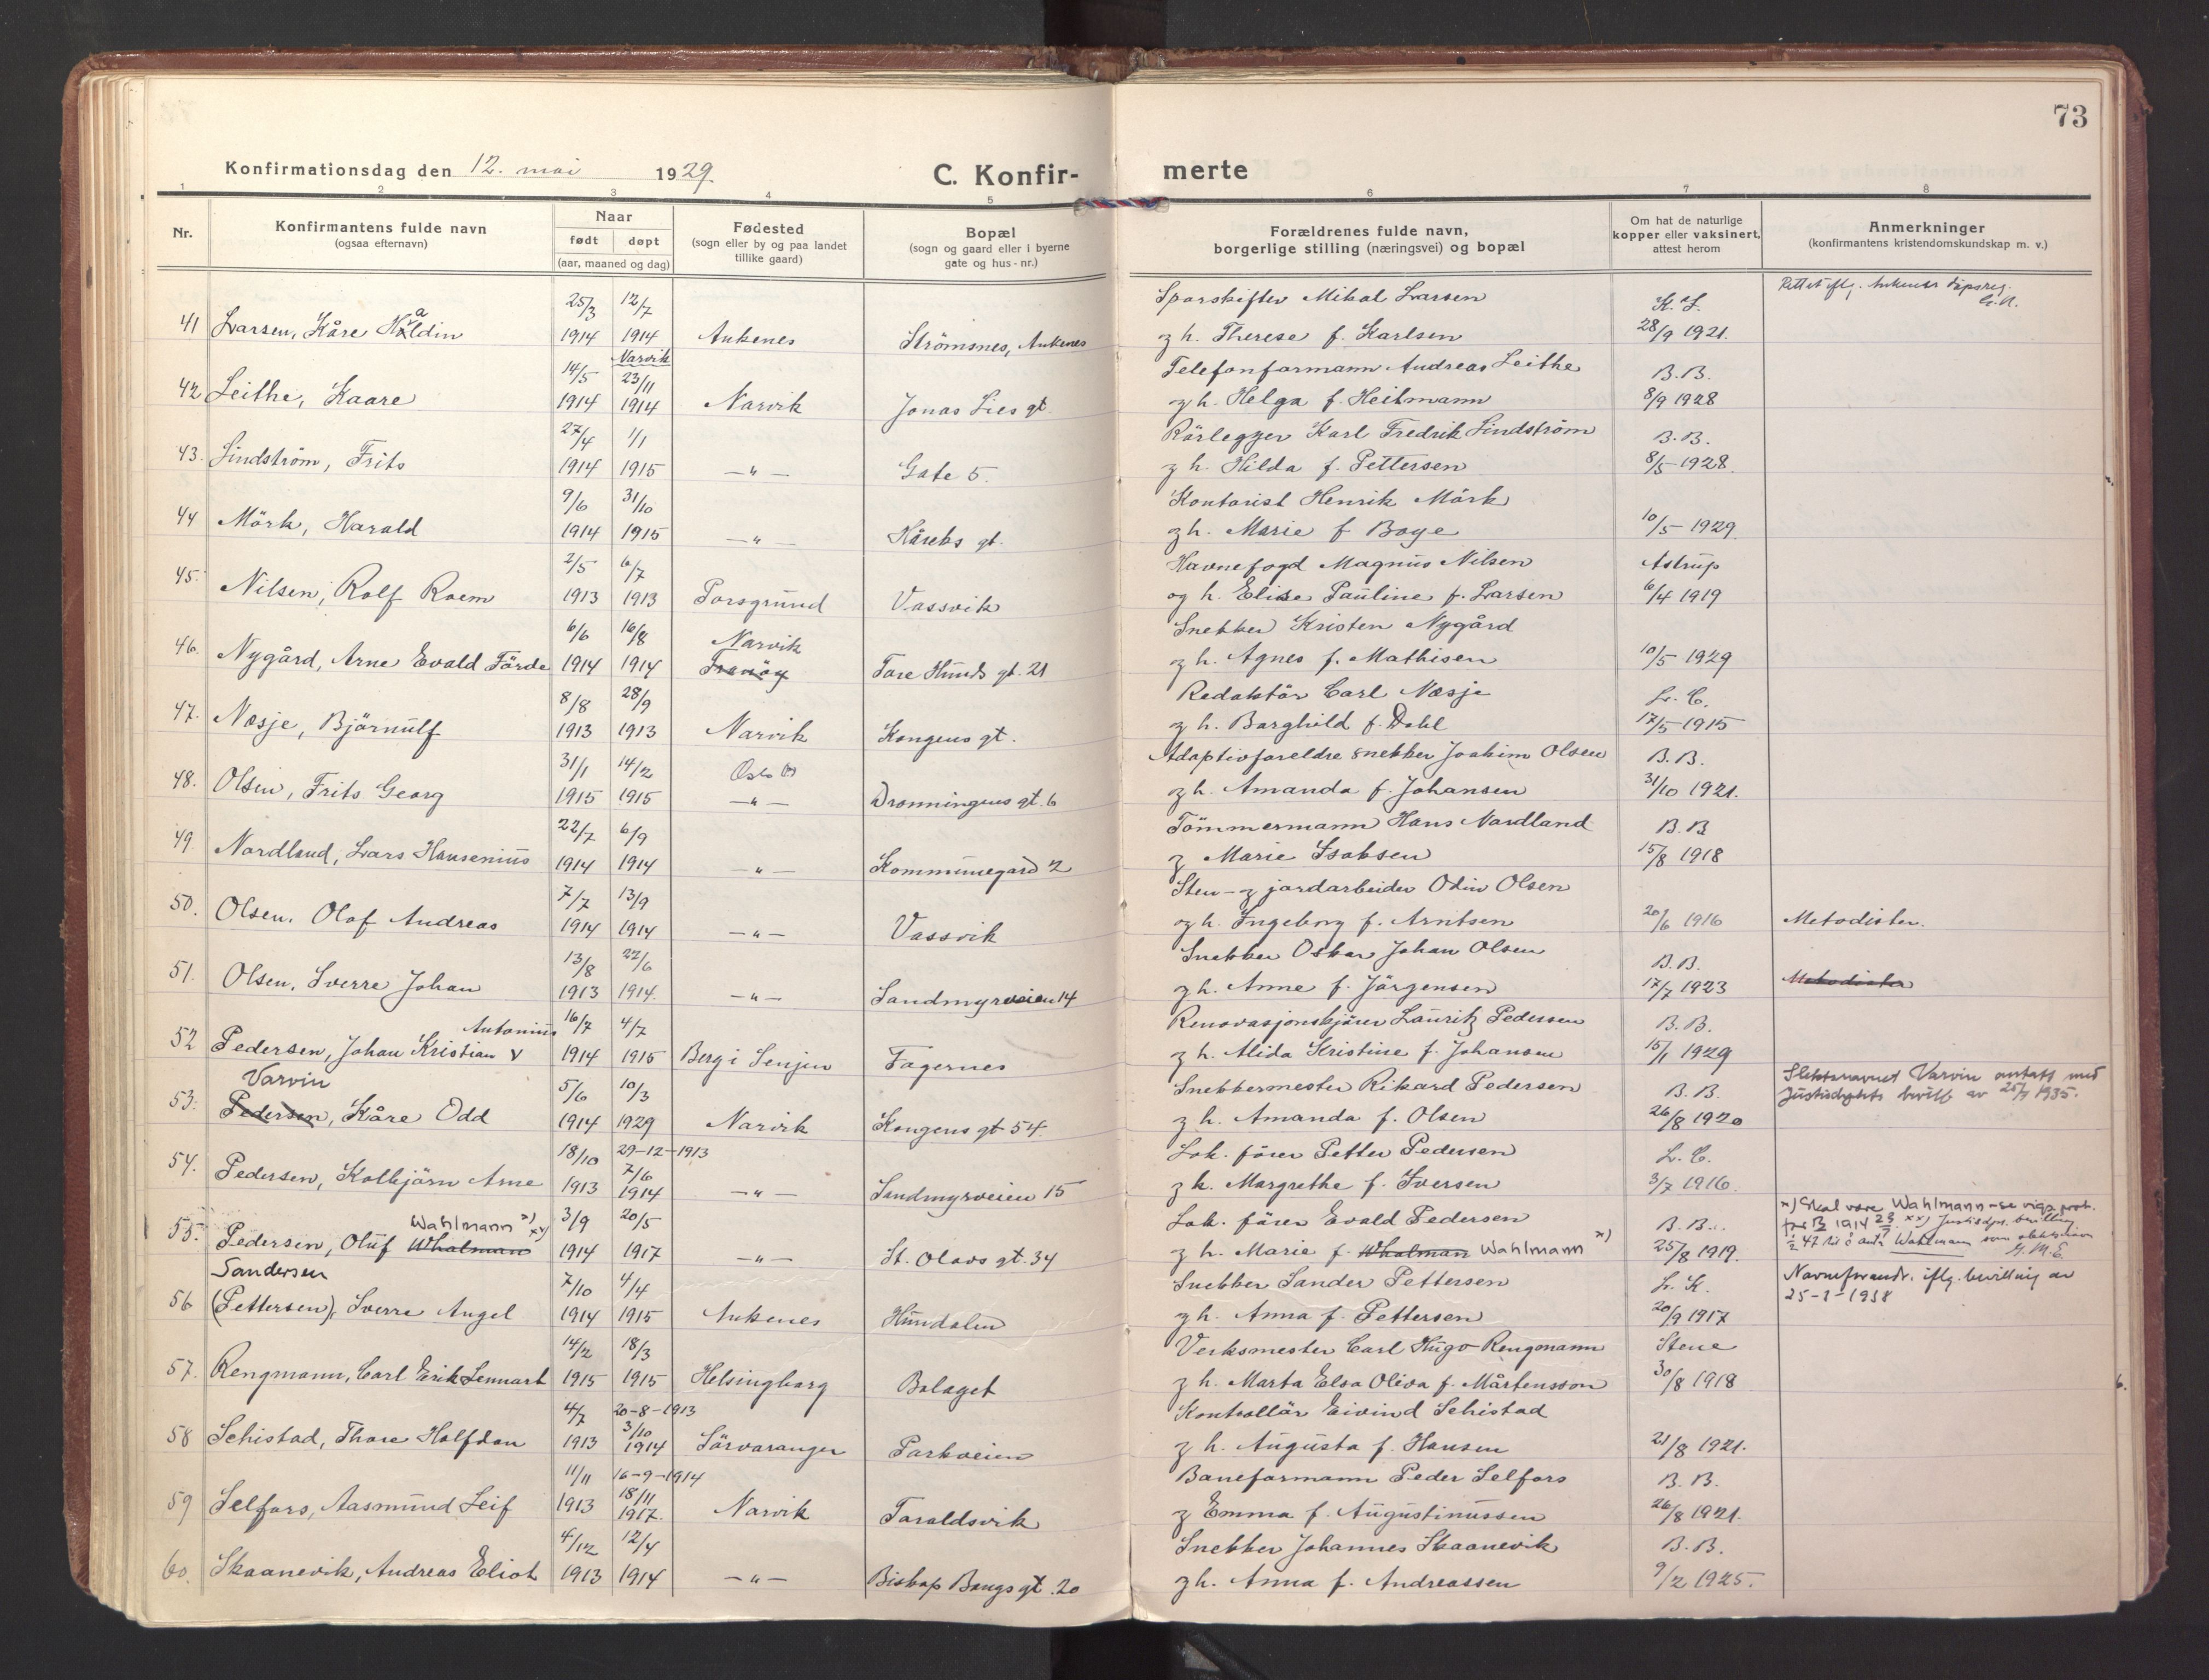 73
Konfirmationsdag den 12. mai 1929
C. Konfir-
merte
1 2 3 4 5 6 7 8
Nr.
Konfirmantens fulde navn
(ogsaa efternavn)
Naar
født døpt
(aar, maaned og dag)
Fødested
(sogn eller by og paa landet
tillike gaard)
Bopæl
(sogn og gaard eller i byerne
gate og hus-nr.)
Forældrenes fulde navn,
borgerlige stilling (næringsvei) og bopæl
Om hat de naturlige
kopper eller vaksinert,
attest herom
Anmerkninger
(konfirmantens kristendomskundskap m. v.)
25/3 12/7 Sporskifter Mikal Larsen K. L.
41 Larsen, Kåre Haldin 1914 1914 Ankenes Strömsnes, Ankenes z h. Therese f. Karlsen 28/9 1921.
Narvik
14/5 23/11 Telefonformann Andreas Leithe B.B.
42 Leithe, Kaare 1914 1914 Narvik Jonas Lies gt. z h. Helga f. Heitmann 8/9 1928
27/4 1/1 Rörlegger Karl Fredrik Lindström B.B.
43. Lindström, Frits 1914 1915 —"— Gate 5. z h. Hilda f. Pettersen 8/5 1928.
9/6 31/10 Kontorist Henrik Mörk
44 Mörk, Harald 1914 1915 —"— Håreks gt. z h. Marie f Boye 10/5 1929.
2/5 6/7 Havnefogd Magnus Nilsen Astrup
45. Nilsen, Rolf Roem 1913 1913 Porsgrund Vassvik og h. Elise Pauline f. Larsen 6/4 1919
6/6 16/8 Narvik Snekker Kristen Nygård
46. Nygård, Arne Evald Förde 1914 1914 Tranöy Tore Hunds gt. 21 z h. Agnes f. Mathisen 10/5 1929
8/8 28/9 Redaktör Carl Næsje L. C.
47. Næsje, Björnulf 1913 1913 Narvik Kongens gt. z h. Borghild f. Dahl 17/5 1915
31/1 14/2 Oslo Adoptivforeldre snekker Joakim Olsen B. B.
48. Olsen, Frits Georg 1915 1915 —"— Dronningens gt. 6 z h. Amanda f. Johansen 31/10 1921.
22/7 6/9 Tömmermann Hans Nordland B. B
49 Nordland, Lars Hansenius 1914 1914 —"— Kommunegård 2 z Marie Isaksen 15/8 1918
7/7 13/9 Sten- z jordarbeider Odin Olsen
50. Olsen, Olaf Andreas 1914 1914 —"— Vassvik og h. Ingeborg f. Arntsen 20/6 1916 Metodister.
13/8 22/6 Snekker Oskar Johan Olsen B. B.
51. Olsen, Sverre Johan 1913 1914. —"— Sandmyrveien 14 z h. Anne f. Jörgensen 17/7 1923 Metodister
Antonius 16/7 4/7 Renovasjonskjörer Lauritz Pedersen B. B.
52 Pedersen, Johan Kristian v 1914 1915 Berg i Senjen Fagernes z h. Alida Kristine f. Johansen 15/1 1929
Varvin 5/6 10/3 Snekkermester Rikard Pedersen B. B. Slektsnavnet Varvin antatt med
53. Pedersen, Kåre Odd 1914 1929 Narvik Kongens gt 54. z h. Amanda f. Olsen 26/8 1920 Justisdptets bevill av 25/7 1935.
18/10 29-12-1913 Lok. förer Petter Pedersen L. C.
7/6
54. Pedersen, Kolbjörn Arne 1913 1914 —"— Sandmyrveien 15 z h. Margrethe f. Iversen 3/7 1916.
Wahlmann x) xx) 3/9 20/5 Lok. förer Evald Pedersen B. B. x) Skal være Wahlmann - se vigs.prot.
55. Pedersen, Oluf Whalman 1914 1917 —"— St. Olavs gt. 34 z h. Marie f. Whalman Wahlmann x) 25/8 1919. xx) Justisdps. bevilling Wahlmann som slektsnavn
Sandersen 7/10 4/4 Snekker Sander Pettersen L. K. Navneforandr. iflg. bevilling av
56 (Pettersen), Sverre Angel 1914 1915 Ankenes Hundalen z h. Anna f. Pettersen 20/9 1917 25-1-1938
14/2 18/3 Verksmester Carl Hugo Rengmann Stene
57. Rengmann, Carl Erik Lennart 1915 1915 Helsingborg Bolaget z h. Marta Elsa Oliva f. Mårtensson 30/8 1918
4/7 20-8-1913 Kontrollör Eivind Schistad
3/10
58 Schistad, Thore Halfdan 1913 1914 Sörvaranger Parkveien z h. Augusta f. Hansen 21/8 1921.
11/11 16-9-1914 Baneformann Peder Selfors B. B.
18/11
59 Selfors, Aasmund Leif 1913 1917. Narvik Taraldsvik z Emma f. Augustinussen 26/8 1921.
4/12 12/4 Snekker Johannes Skaanevik B. B.
60. Skaanevik, Andreas Eliot 1913 1914 —"— Biskop Bangs gt. 20 z h. Anna f. Andreassen 9/2 1925.